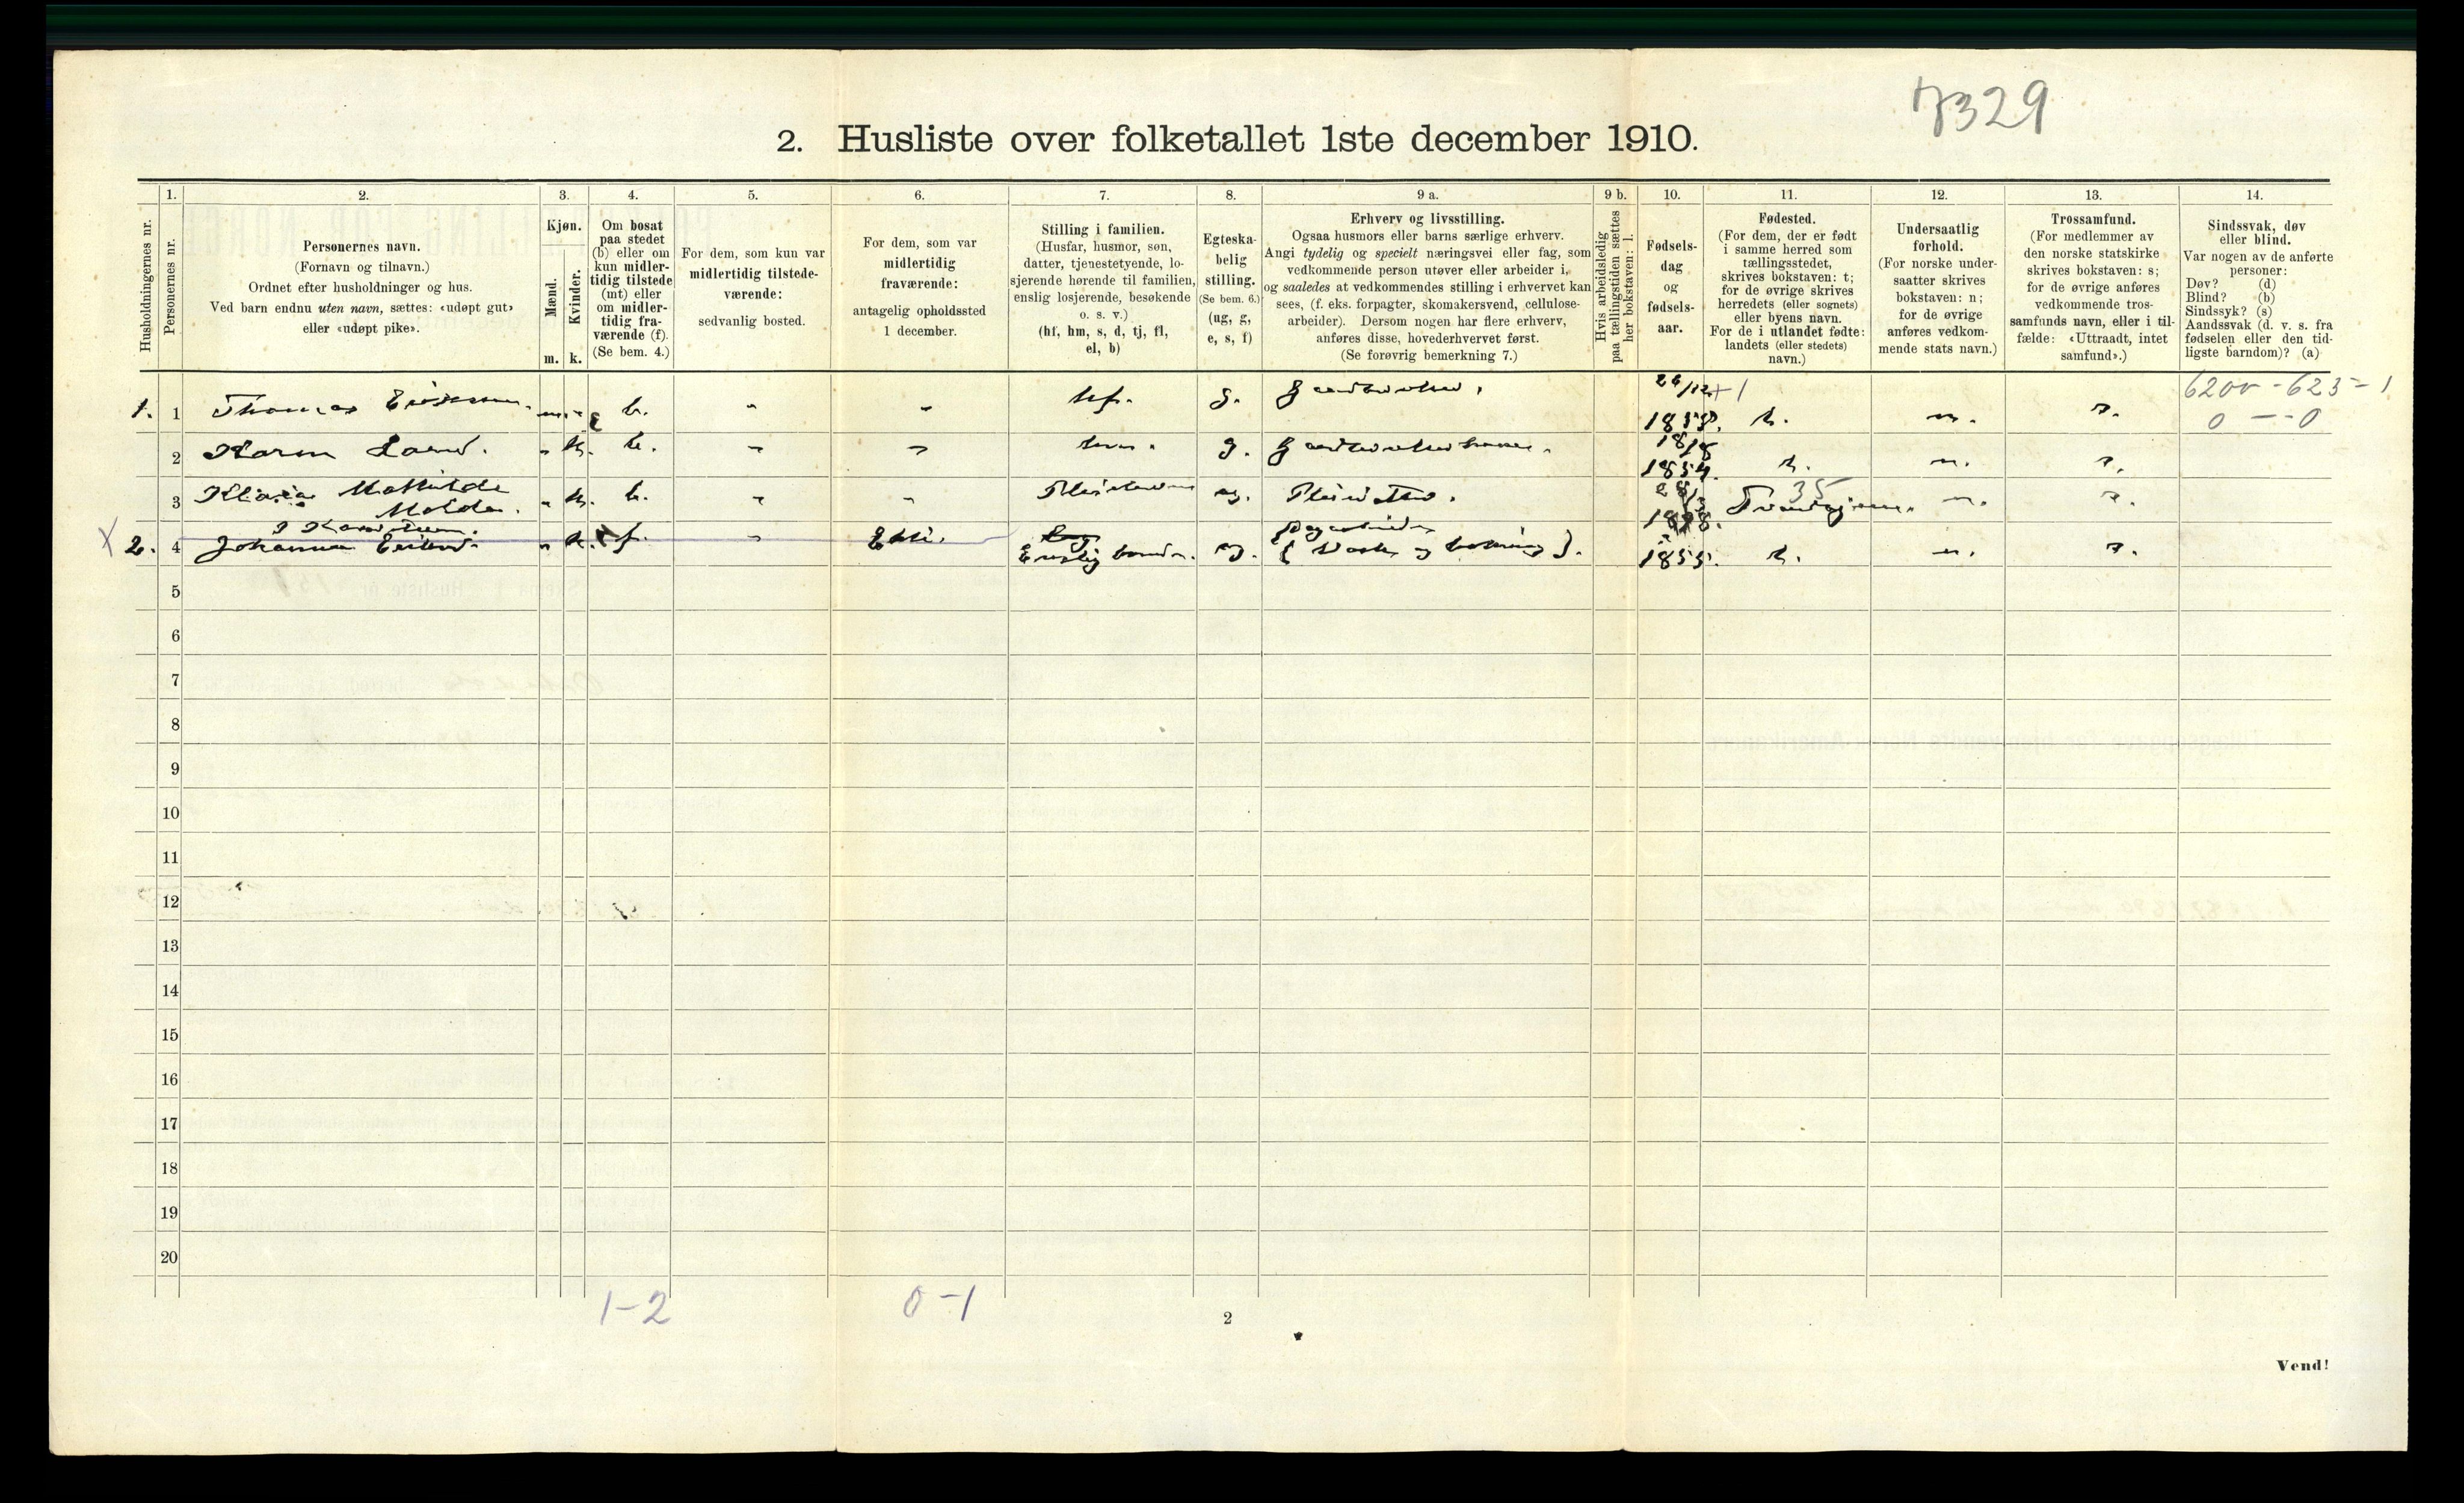 7329
2. Husliste over folketallet 1ste december 1910.
Husholdningernes nr.
1.
Personernes nr.
2.
Personernes navn.
(Fornavn og tilnavn.)
Ordnet efter husholdninger og hus.
Ved barn endnu uten navn, sættes: «udøpt gut»
eller «udøpt pike».
3.
Kjøn.
Mænd.
m.
Kvinder.
k.
4.
Om bosat
paa stedet
(b) eller om
kun midler-
tidig tilstede
(mt) eller
om midler-
tidig fra-
værende (f).
(Se bem. 4.)
5.
For dem, som kun var
midlertidig tilstede-
værende:
sedvanlig bosted.
6.
For dem, som var
midlertidig
fraværende:
antagelig opholdssted
1 december.
7.
Stilling i familien.
(Husfar, husmor, søn,
datter, tjenestetyende, lo-
sjerende hørende til familien,
enslig losjerende, besøkende
o. s. v.)
(hf, hm, s, d, tj, fl,
el, b)
8.
Egteska-
belig
stilling.
(Se bem. 6.)
(ug, g,
e, s, f)
9 a.
Erhverv og livsstilling.
Ogsaa husmors eller barns særlige erhverv.
Angi tydelig og specielt næringsvei eller fag, som
vedkommende person utøver eller arbeider i,
og saaledes at vedkommendes stilling i erhvervet kan
sees, (f. eks. forpagter, skomakersvend, cellulose-
arbeider). Dersom nogen har flere erhverv,
anføres disse, hovederhvervet først.
(Se forøvrig bemerkning 7.)
9 b.
Hvis arbeidsledig
paa tællingstiden sættes
her bokstaven: l.
10.
Fødsels-
dag
og
fødsels-
aar.
11.
Fødested.
(For dem, der er født
i samme herred som
tællingsstedet,
skrives bokstaven: t;
for de øvrige skrives
herredets (eller sognets)
eller byens navn.
For de i utlandet fødte:
landets (eller stedets)
navn.)
12.
Undersaatlig
forhold.
(For norske under-
saatter skrives
bokstaven: n;
for de øvrige
anføres vedkom-
mende stats navn.)
13.
Trossamfund.
(For medlemmer av
den norske statskirke
skrives bokstaven: s;
for de øvrige anføres
vedkommende tros-
samfunds navn, eller i til-
fælde: «Uttraadt, intet
samfund».)
14.
Sindssvak, døv
eller blind.
Var nogen av de anførte
personer:
Døv? (d)
Blind? (b)
Sindssyk? (s)
Aandssvak (d. v. s. fra
fødselen eller den tid-
ligste barndom)? (a)
1. 1 Thomas m. b. hf. g. t. n. s.
0 - - 0
2 Karen k. b. hm. g. 18/8 1854. t. n. s.
3 Mathilde k. b. ug. 35 n. s.
X 2. 4 Johanna k. f. Enslig ug. 1855. t. n. s.
5
6
7
8
9
10
11
12
13
14
15
16
17
18
19
20
1-2
0-1
2
Vend!